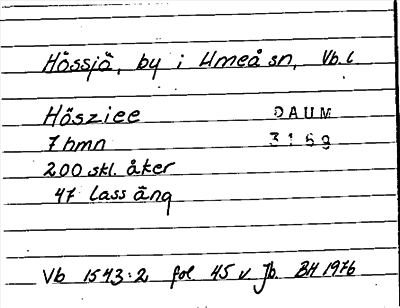 Hössjö, by i Umeå sn, Vb. l
Hösziee DAUM
7 hmn 3169
200 skl. åker
47 lass äng
Vb 1543:2 fol 45 v Jb. BH 1976